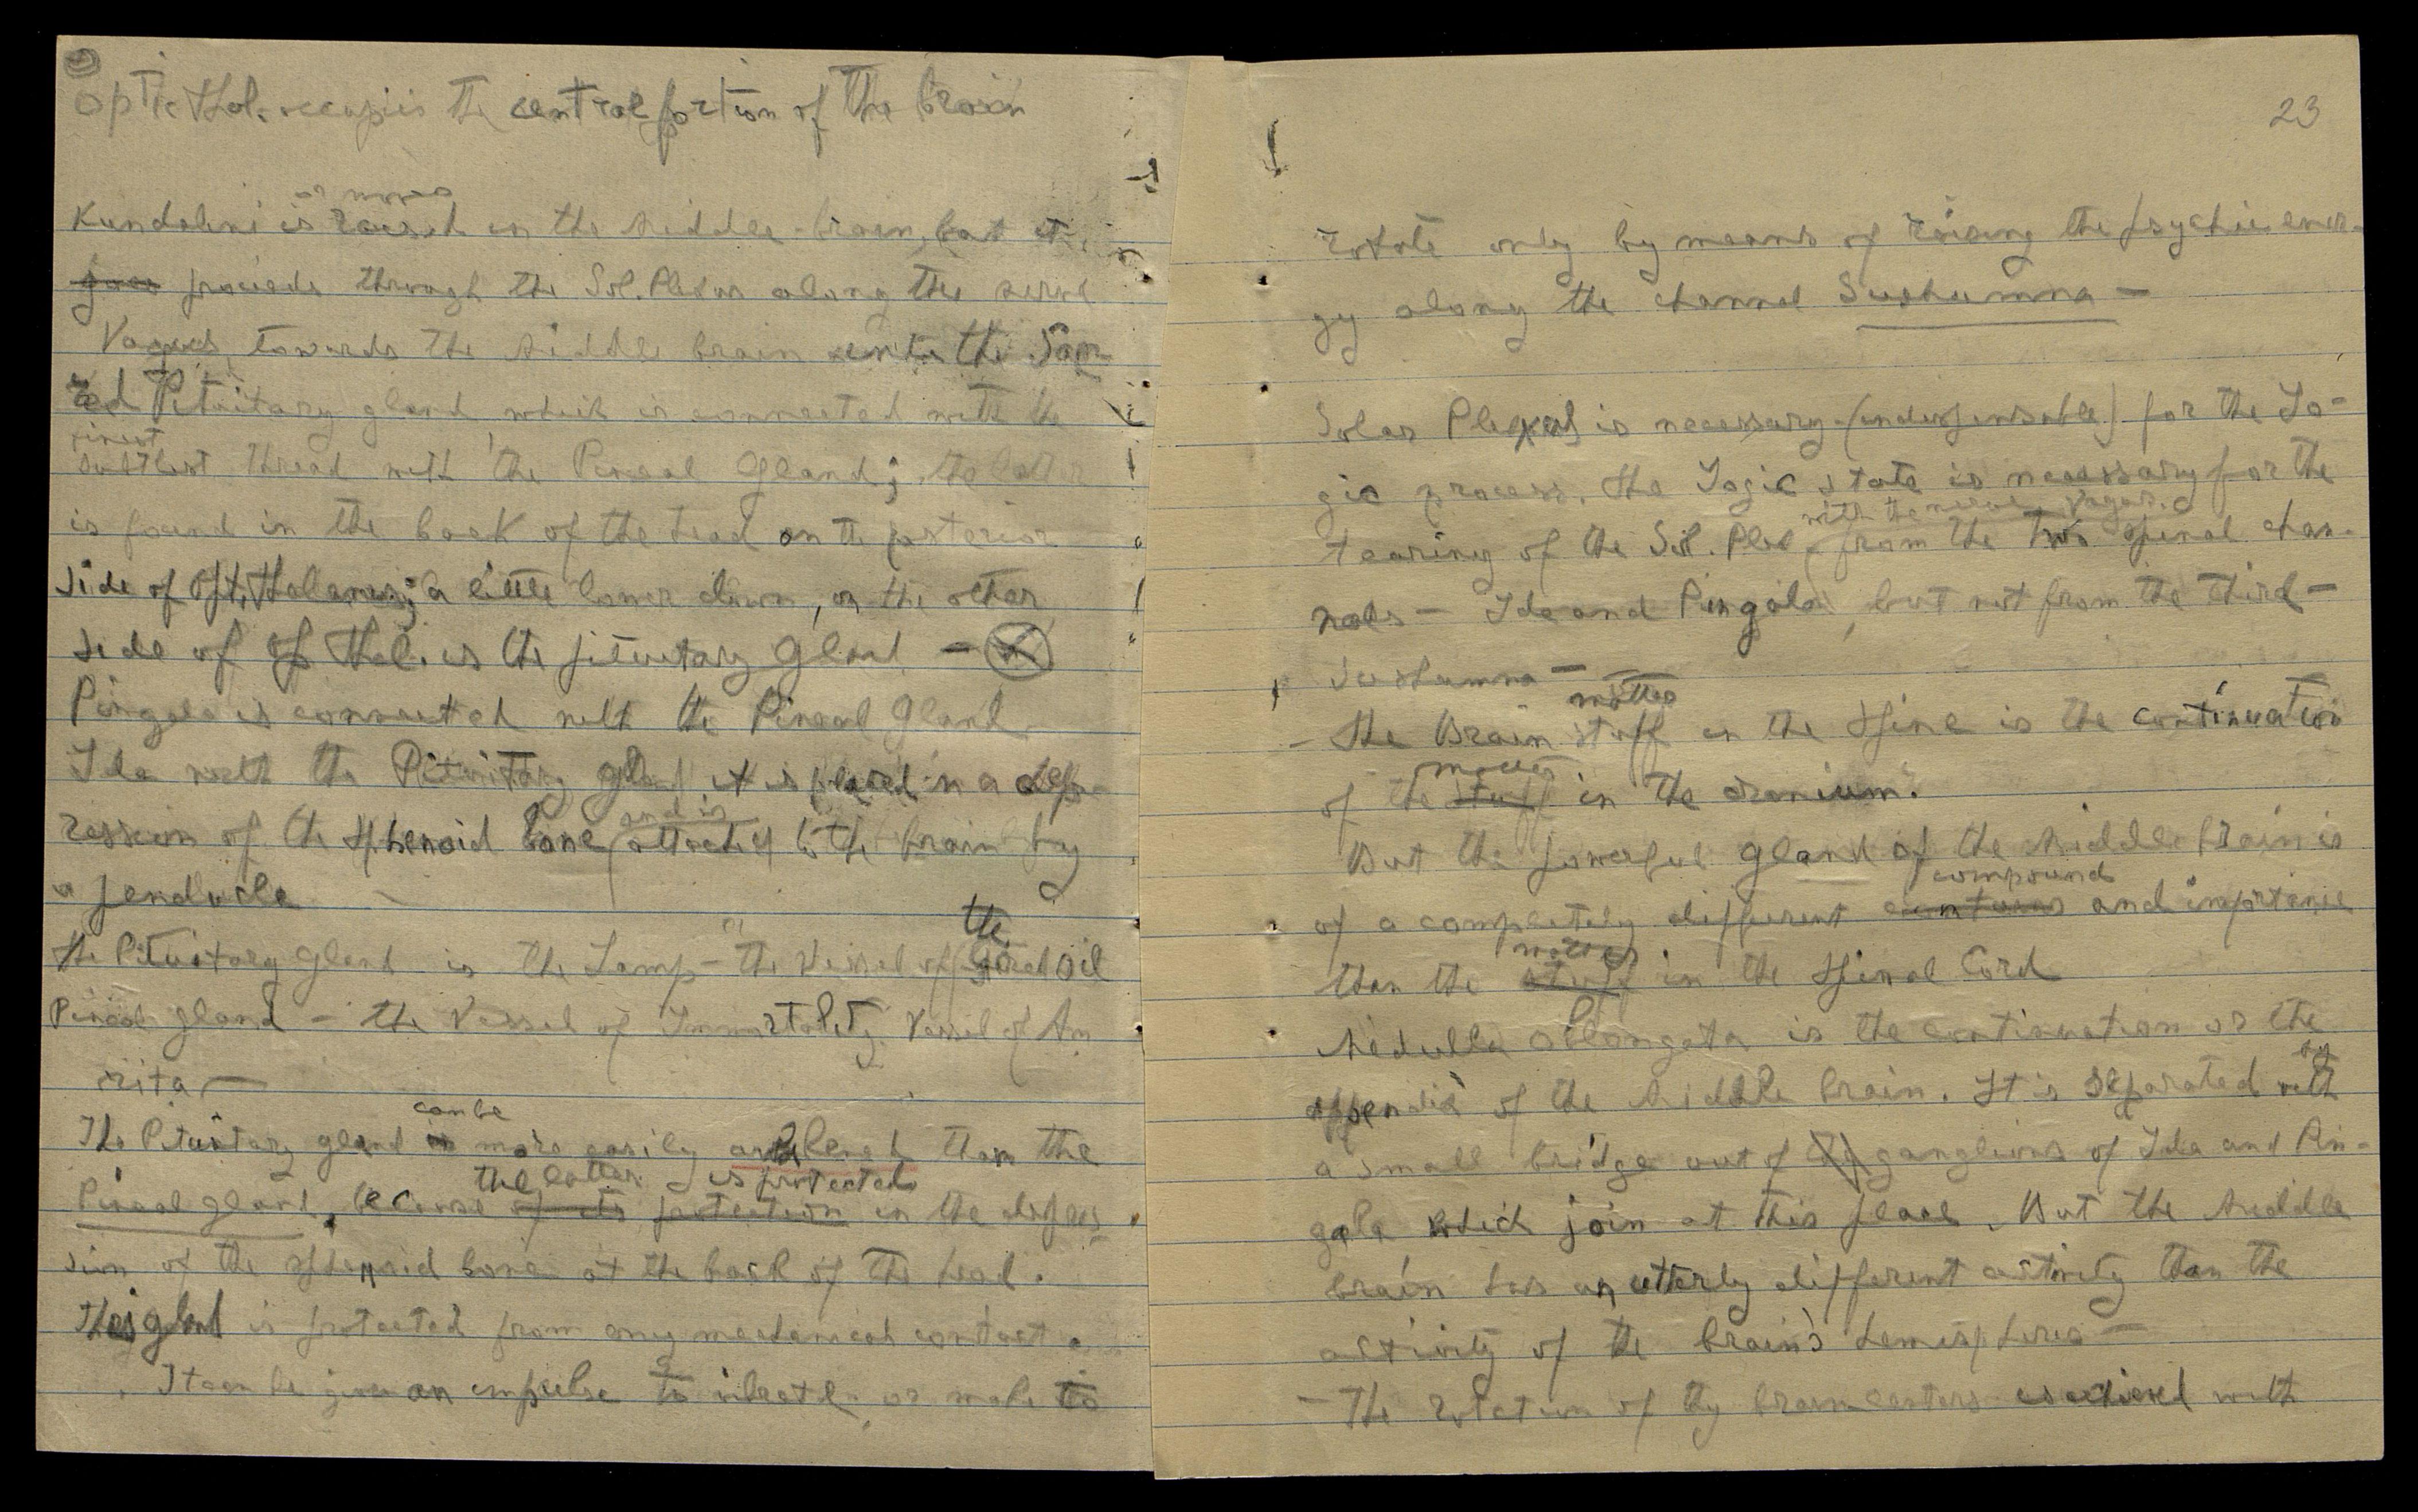 Optic thal. occupies the central portion of the brain
or moves
Kundalini is raised in the middle-brain, but it
goes proceeds through the Sol. Plexus along the nerve
Vagus, towards the middle brain the Sac-
red Pituitary gland which is connected with the
finest
subtlest thread with the Pineal Gland; the latter
is found in the back of the head on the posterior
side of Opt. Thalamus; a little lower down, on the other
side of op thal. is the pituitary gland —
Pingala is connected with the Pineal Gland
Ida with the Pituitary gland it is placed in a dep-
and is
ression of the sphenoid bone attached to the brain by
a penducle
the
The Pituitary Gland is the Lamp – the Vessel of Sacred Oil
Pineal gland – the Vessel of Immortality. Vessel of Am
rita —
can be
The Pituitary gland is more easily than the
the latter is protected
Pineal gland, because of its protection in the depres
sion of the sphenoid bone at the back of the head.
This gland is protected from any mechanical contact
It can be given an impulse to vibrate or make to
23
rotate only by means of raising the psychic ener-
gy along the channel Sushumna —
Solar Plexus is necessary (undispensable) for the Yo-
gic process. The Yogic state is necessary for the
with the nerve Vagus.
tearing of the Sol. Plex from the two spinal chan-
nels — Ida and Pingala, but not from the third —
Sushumna —
matter
– The Brain stuff in the Spine is the continuation
matter
of the stuff in the cranium.
But the powerful gland of the middle brain is
compound
of a completely different and importance
matter
than the stuff in the Spinal Cord
Medulla oblongata is the continuation or the
by
appendix of the middle brain. It is separated with
a small bridge out of ganglions of Ida and Pin-
gala which join at this place. But the middle
brain has an utterly different activity than the
activity of the brain's hemispheres —
– The rotation of the brain centers is achieved with